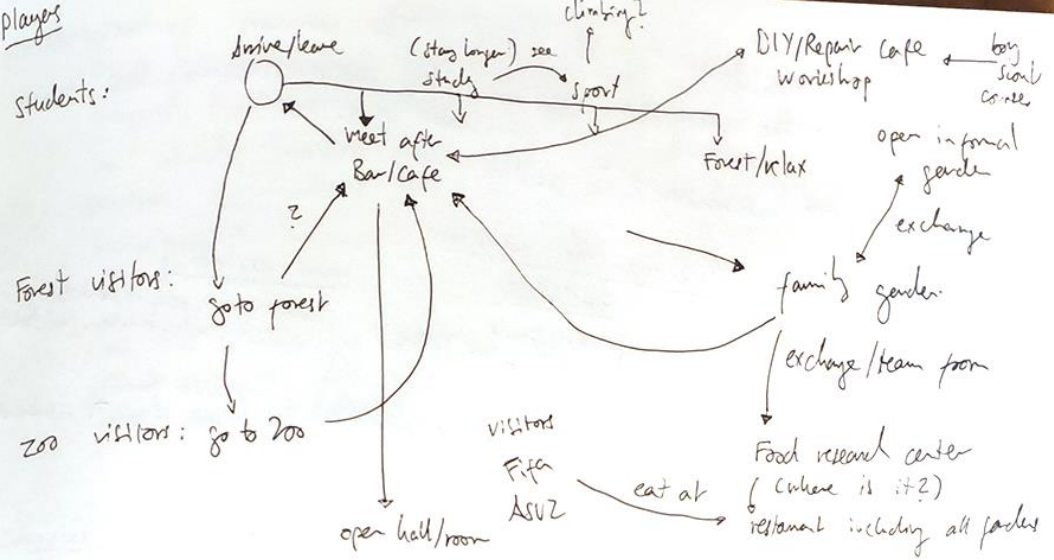 players
climbing?
Arrive/leave
(stay longer!) see
study
sport
DIY/Repair Cafe
Workshop
boy
scout
corner
Students:
meet after
Bar/Cafe
Forest/relax
open informal
garden
exchange
?
Forest visitors:
go to forest
family garden
exchange/learn from
zoo visitors: go to Zoo
visitors
Fifa
ASVZ
eat at
Food research center
(where is it?)
restaurant including all gardens
open hall/room